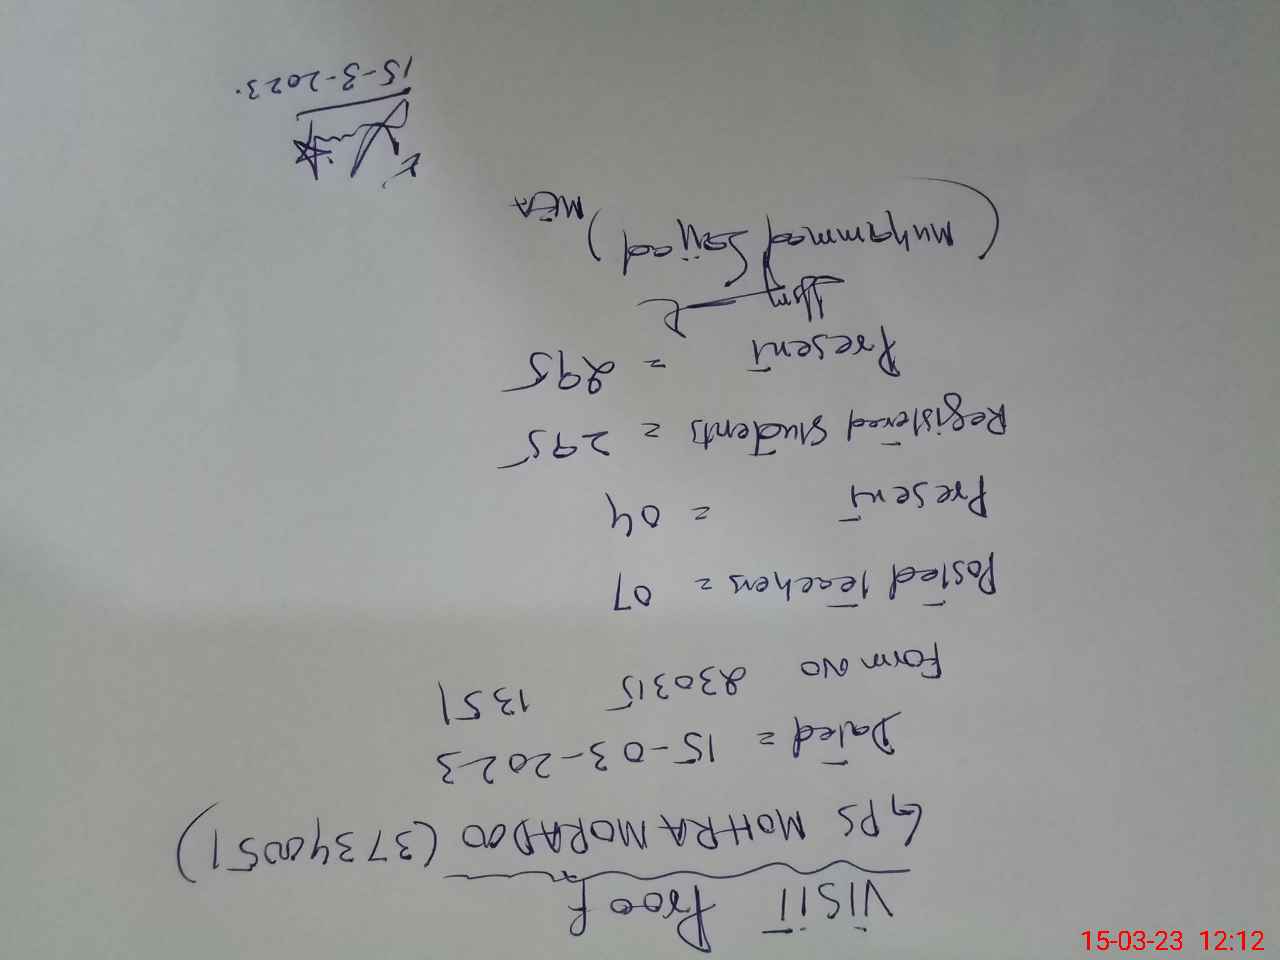 VISIT Proof
GPS MOHRA MORADOO (37340051)
Dated = 15-03-2023
Form No 230315 1351
Posted teachers = 07
Present = 04
Registered students = 295
Present = 295
(Muhammad Sajjad)
MEA
15-3-2023.
15-03-23 12:12